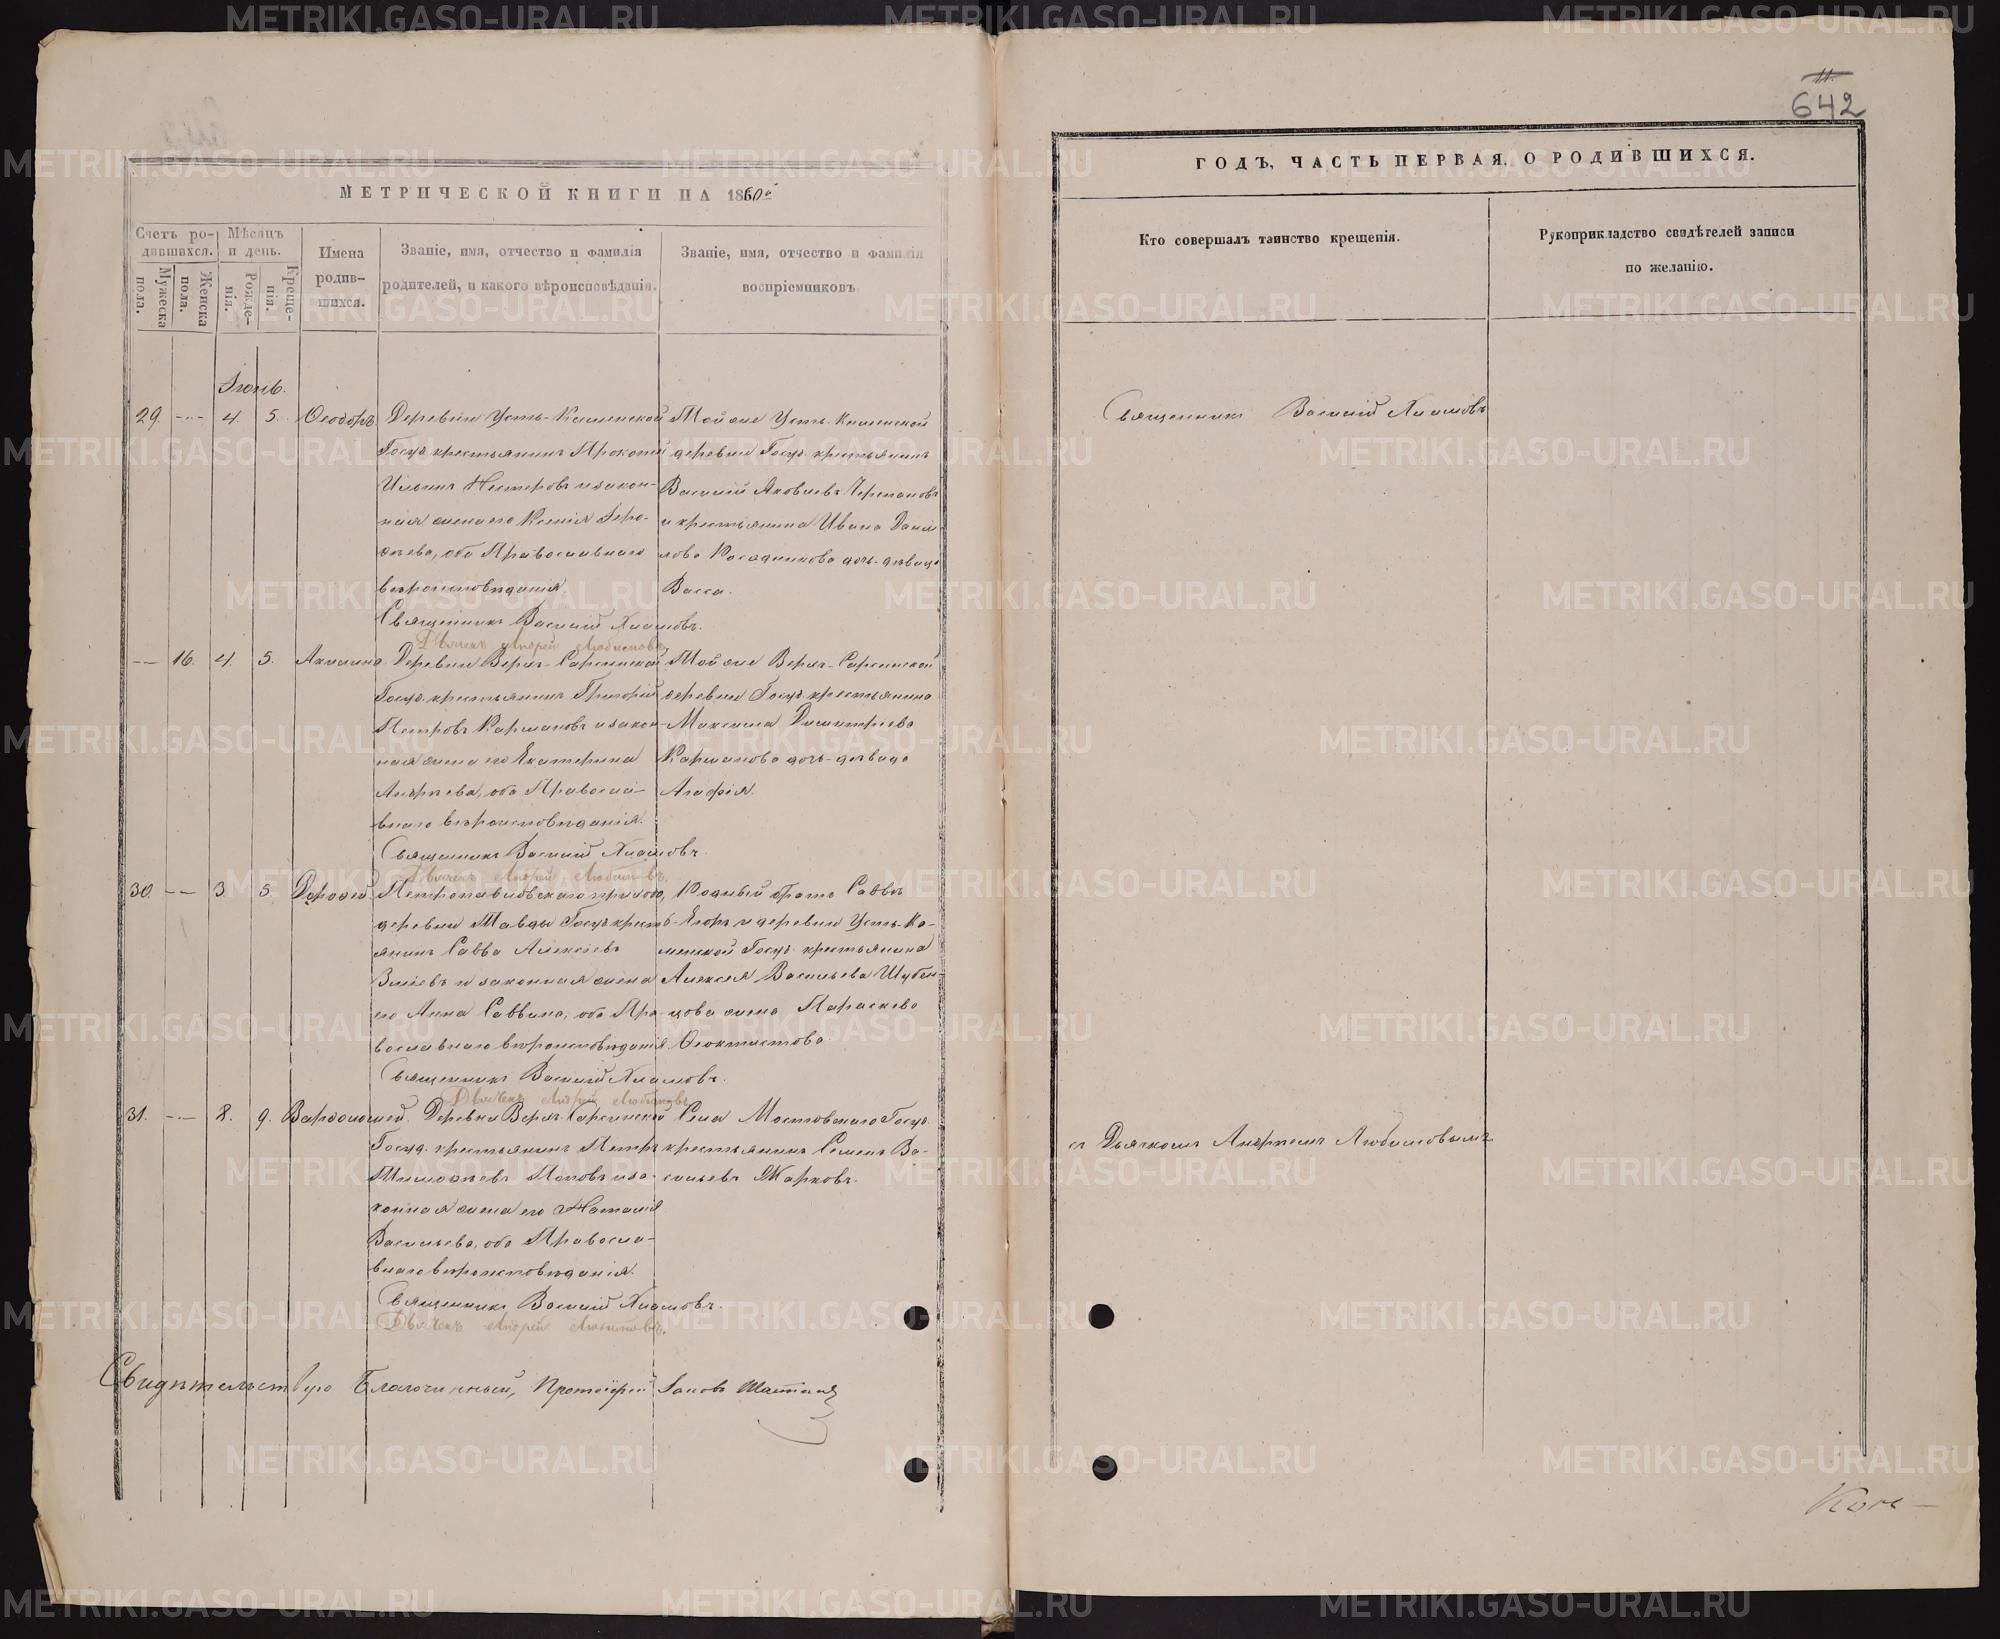 МЕТРИЧЕСКОЙ КНИГИ НА 1860й
Счетъ ро-
дившихся.
Мѣсяцъ
и день.
Мужеска
пола.
Женска
пола.
Рожде-
нія.
Креще-
нія.
Имена
родив-
шихся.
Званіе, имя, отчество и фамилія
родителей, и какого вѣроисповѣданія.
Званіе, имя, отчество и фамилія
воспріемниковъ.
Іюнь.
29. 4. 5. Ѳеодоръ
Деревни Усть-Каменской
Госуд. крестьянинъ Прокопій
Ильинъ Нестеровъ и закон-
ная жена его Ксенія
обa Православнаго
вѣроисповѣданія.
Священникъ Василій Хламовъ.
Дьячекъ Андрей Любимовъ.
Той же Усть-Каменской
деревни Госуд. крестьянинъ
Василій Яковлевъ Черепановъ
и крестьянина Ивана Дани-
лова дочь-дѣвица
Васса.
16. 4. 5. Акилина
Деревни Верхъ-Сарсинской
Госуд. крестьянинъ Григорій
Петровъ Кармановъ и закон-
ная жена его Екатерина
Андреева, оба Правосла-
внаго вѣроисповѣданія.
Священникъ Василій Хламовъ.
Дьячекъ Андрей Любимовъ.
Той же Верхъ-Сарсинской
деревни Госуд. крестьянина
Максима Димитріева
Карманова дочь-дѣвица
Агафія.
30. 3. 5. Дороѳей
Петропавловскаго прихода,
деревни Тавды Госуд. кресть-
янинъ Савва Алексіевъ
и законная жена
его Анна Саввина, оба Пра-
вославнаго вѣроисповѣданія.
Священникъ Василій Хламовъ.
Дьячекъ Андрей Любимовъ.
Родный братъ Саввы
Егоръ и деревни Усть-Ка-
менской Госуд. крестьянина
Алексея Васильева Шубен-
цова жена Параскева
Ѳеоктистова.
31. 8. 9. Варѳоломей.
Деревни Верхъ-Сарсинской
Госуд. крестьянинъ Петръ
Тимоѳеевъ Поповъ и за-
конная жена его Наталія
Васильева, оба Правосла-
внаго вѣроисповѣданія.
Священникъ Василій Хламовъ.
Дьячекъ Андрей Любимовъ.
Села Мостовскаго Госуд.
крестьянинъ Семенъ Ва-
сильевъ Жарковъ.
Свидѣтельствую Благочинный, Протоіерей Іаковъ
11.
642
ГОДЪ, ЧАСТЬ ПЕРВАЯ, О РОДИВШИХСЯ.
Кто совершалъ таинство крещенія.
Рукоприкладство свидѣтелей записи
по желанію.
Священникъ Василій Хламовъ
съ Дьячкомъ Андреемъ Любимовымъ
METRIKI.GASO-URAL.RU